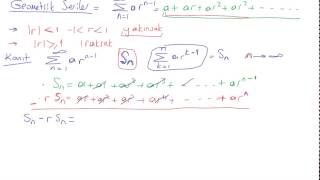 Geometrik Seriler = ∑_{n=1}^{∞} ar^{n-1} = a + ar + ar² + ar³ + -----
→ |r| < 1 -1<r<1 yakınsak
→ |r| ⩾ 1 ıraksak
Kanıt ∑_{n=1}^{∞} ar^{n-1} S_n ∑_{k=1}^{n} ar^{k-1} = S_n n→∞
S_n = a + ar + ar² + ar³ + ... + ar^{n-1}
- r S_n = ar + ar² + ar³ + ar⁴ + ---- + ar^n
S_n - r S_n =